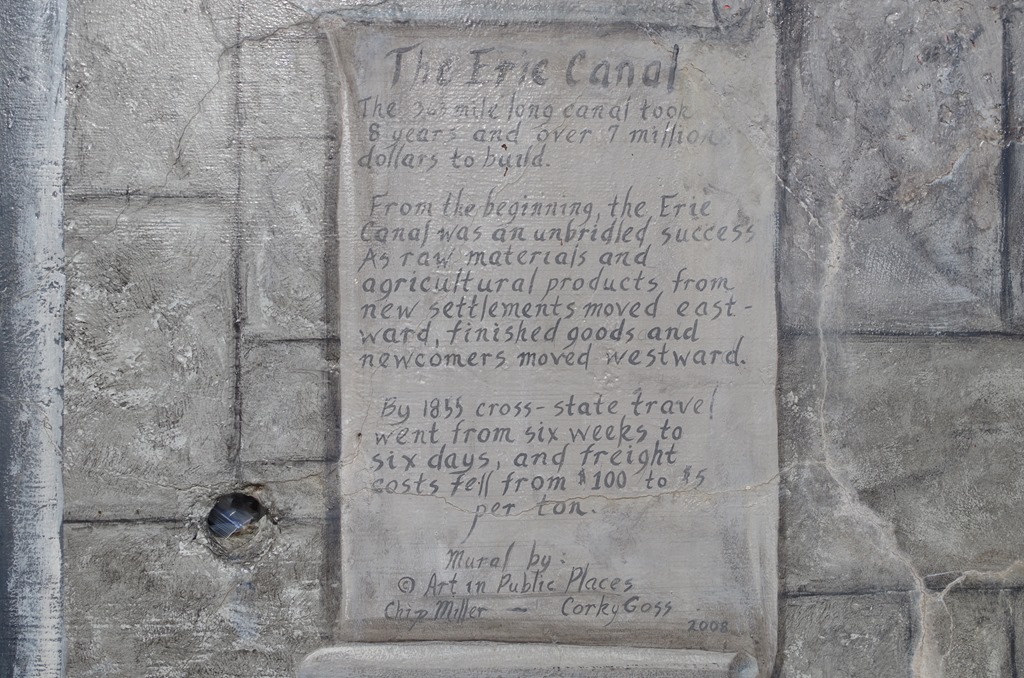 The Erie Canal
The 363 mile long canal took
8 years and over 7 million
dollars to build.
From the beginning, the Erie
Canal was an unbridled success
As raw materials and
agricultural products from
new settlements moved east-
ward, finished goods and
newcomers moved westward.
By 1855 cross-state travel
went from six weeks to
six days, and freight
costs fell from $100 to $5
per ton.
Mural by:
© Art in Public Places
Chip Miller — Corky Goss
2008